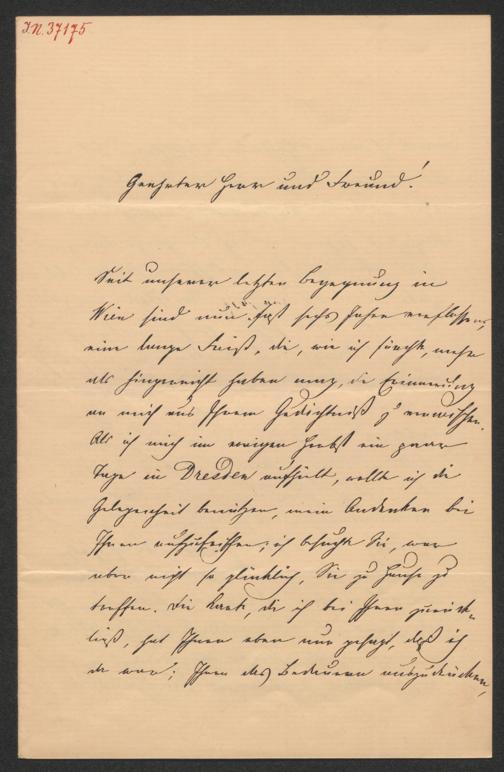 I.N. 37175
Geehrter Herr und Freund!
Seit unserer letzten Begegnung in
Wien sind nun fast sechs Jahre verflossen,
eine lange Frist, die, wie ich fürchte, mehr
als hingereicht haben mag, die Erinnerung
an mich aus Ihrem Gedächtniß zu verwischen.
Als ich mich im vorigen Herbst ein paar
Tage in Dresden aufhielt, wollte ich die
Gelegenheit benützen, mein Andenken bei
Ihnen aufzufrischen; ich besuchte Sie, war
aber nicht so glücklich, Sie zu Hause zu
treffen. Die Karte, die ich bei Ihnen zurück-
ließ, hat Ihnen eben nur gesagt, daß ich
da war; Ihnen das Bedauern auszudrücken,